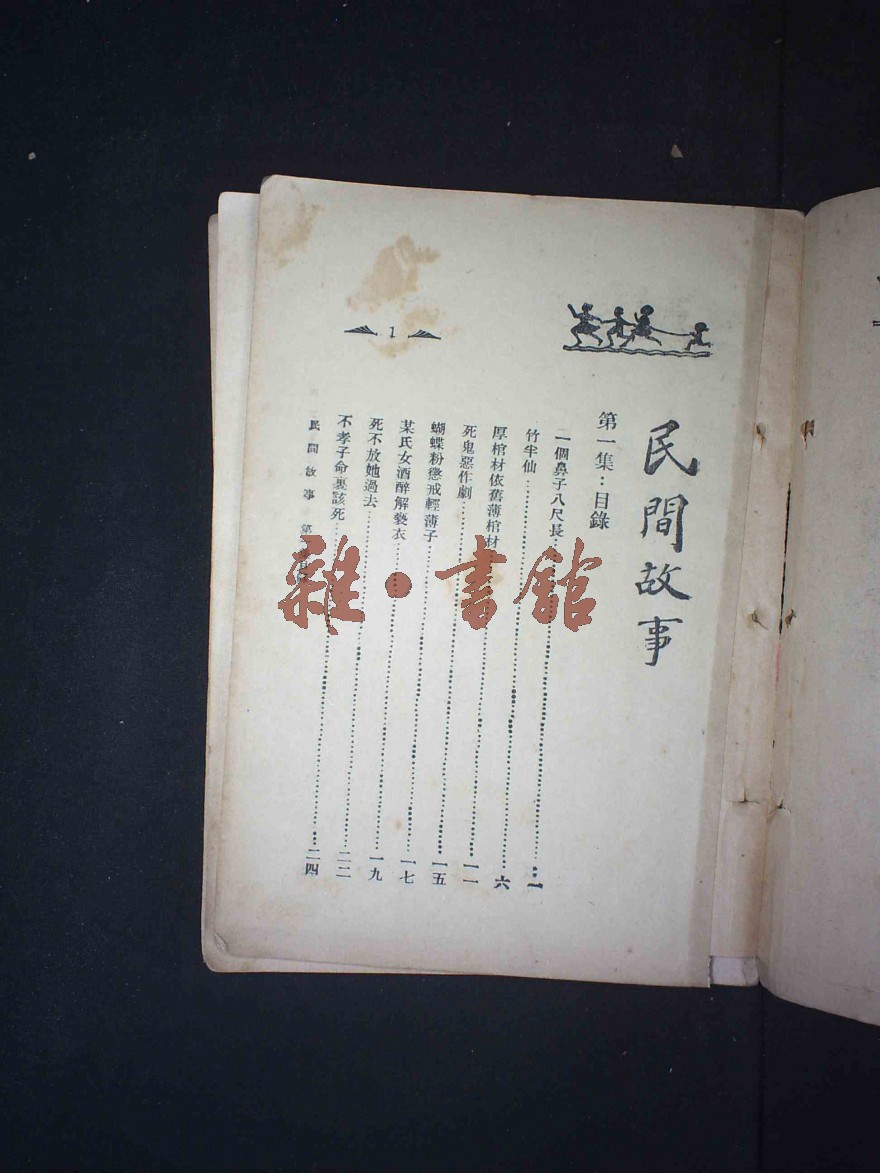 民間故事
第一集：目錄
一個鼻子八尺長……一
竹半仙……六
厚棺材依舊薄棺材……一一
死鬼惡作劇……一五
蝴蝶粉懲戒輕薄子……一七
某氏女酒醉解褻衣……一九
死不放她過去……二二
不孝子命裏該死……二四
民間故事 第
1
雜·書館